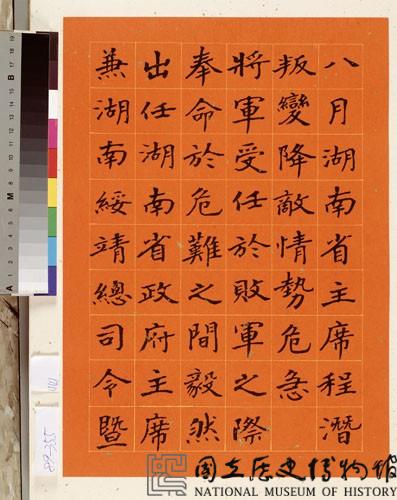 八月湖南省主席程潛
叛變降敵情勢危急
將軍受任於敗軍之際
奉命於危難之間毅然
出任湖南省政府主席
兼湖南綏靖總司令暨
89-355
國立歷史博物館
NATIONAL MUSEUM OF HISTORY